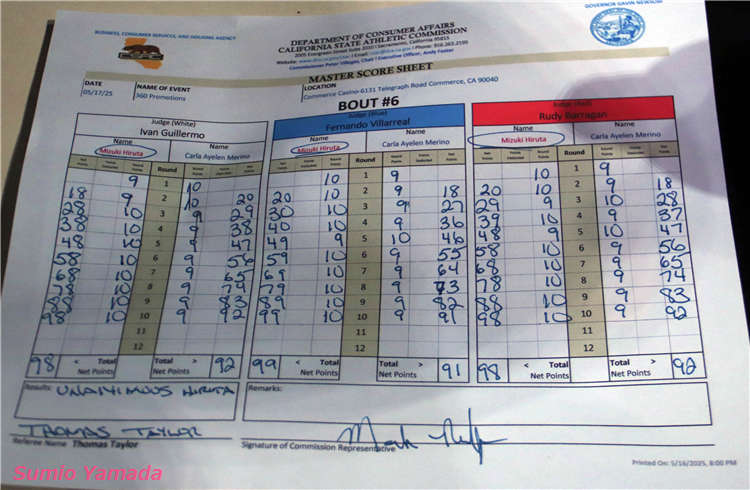 GOVERNOR GAVIN NEWSOM
BUSINESS, CONSUMER SERVICES, AND HOUSING AGENCY
DEPARTMENT OF CONSUMER AFFAIRS
CALIFORNIA STATE ATHLETIC COMMISSION
2005 Evergreen Street Suite 2010 | Sacramento, California 95815
Website: www.dca.ca.gov/csac | Email: csac@dca.ca.gov | Phone: 916.263.2195
Commissioner Peter Villegas, Chair | Executive Officer, Andy Foster
MASTER SCORE SHEET
DATE NAME OF EVENT LOCATION
05/17/25 360 Promotions Commerce Casino-6131 Telegraph Road Commerce, CA 90040
BOUT #6
Judge (White) Judge (Blue) Judge (Red)
Ivan Guillermo Fernando Villarreal Rudy Barragan
Name Name Name Name Name Name
Mizuki Hiruta Carla Ayelen Merino Mizuki Hiruta Carla Ayelen Merino Mizuki Hiruta Carla Ayelen Merino
Net Points Points Deducted Round Points Round Round Points Points Deducted Net Points Net Points Points Deducted Round Points Round Round Points Points Deducted Net Points Net Points Points Deducted Round Points Round Round Points Points Deducted Net Points
9 1 10 10 1 9 10 1 9
18 9 2 10 20 20 10 2 9 18 20 10 2 9 18
28 10 3 9 29 30 10 3 9 27 29 9 3 10 28
38 10 4 9 38 40 10 4 9 36 39 10 4 9 37
48 10 5 9 47 49 9 5 10 46 48 9 5 10 47
58 10 6 9 56 59 10 6 9 55 58 10 6 9 56
68 10 7 9 65 69 10 7 9 64 68 10 7 9 65
78 10 8 9 74 79 10 8 9 73 78 10 8 9 74
88 10 9 9 83 89 10 9 9 82 88 10 9 9 83
98 10 10 9 92 99 10 10 9 91 98 10 10 9 92
11 11 11
12 12 12
98 < Total > 92 99 < Total > 91 98 < Total > 92
Net Points Net Points Net Points Net Points Net Points Net Points
Results: UNANIMOUS HIRUTA Remarks:
THOMAS TAYLOR
Referee Name Thomas Taylor Signature of Commission Representative
Printed On: 5/16/2025, 8:00 PM
Sumio Yamada